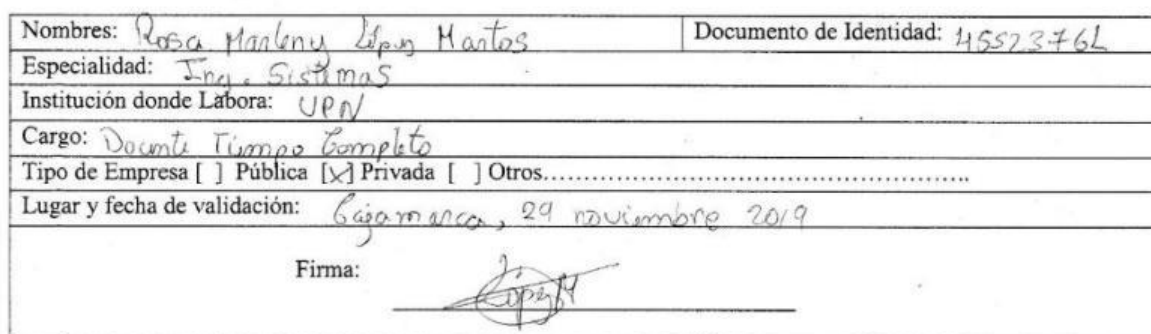 Nombres: Rosa Marleny López Martos Documento de Identidad: 45523761
Especialidad: Ing. Sistemas
Institución donde Labora: UPN
Cargo: Docente Tiempo Completo
Tipo de Empresa [ ] Pública [x] Privada [ ] Otros........................................................
Lugar y fecha de validación: Cajamarca, 29 noviembre 2019
Firma:
López M